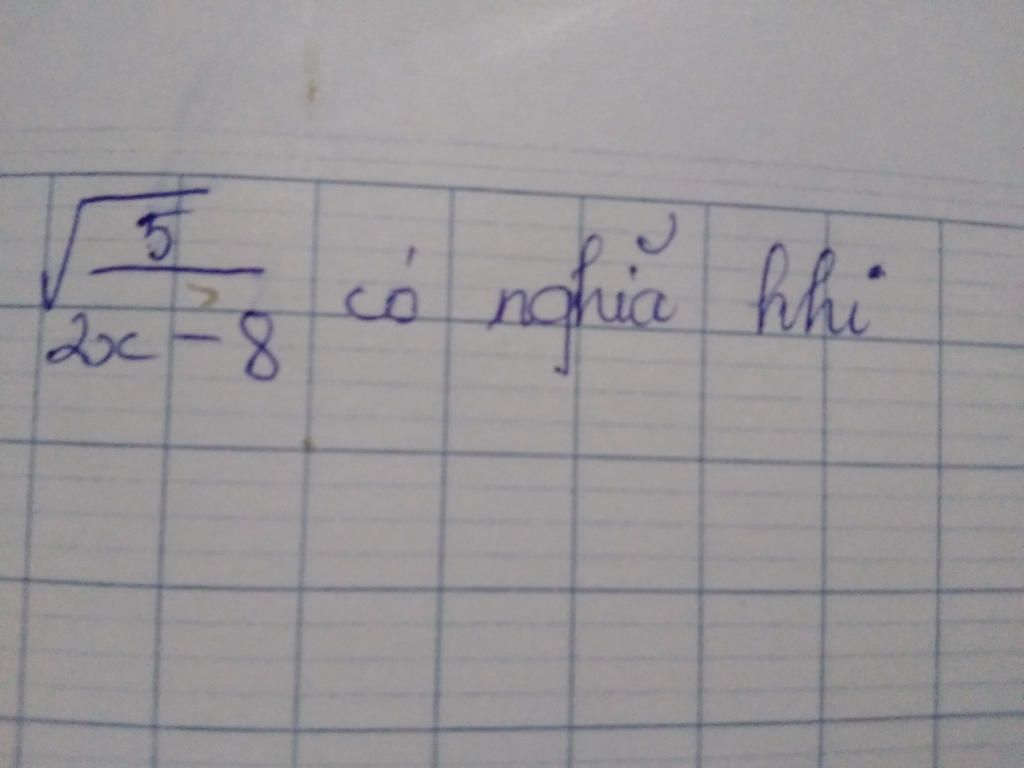 √5/2x - 8 có nghĩa khi